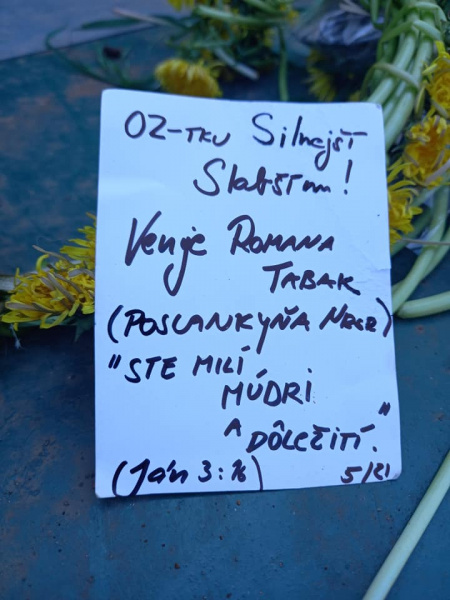 OZ-TKU Silnejší
Slabším!
Venuje ROMANA
TABAK
(POSLANKYŇA NRSR)
"STE MILÍ
MÚDRI
A DÔLEŽITÍ."
(Ján 3:16)
5/21